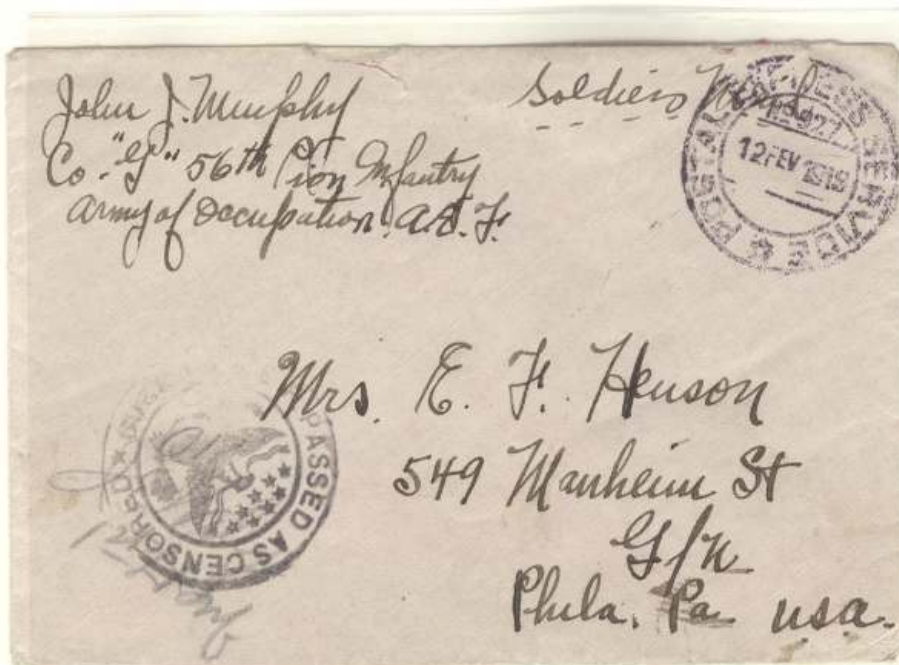 John J. Murphy
Co. "G" 56th Pion Infantry
Army of Occupation. A.E.F.
Soldiers Mail
POSTAL EXPRESS SERVICE
927
12 FEV 1919
Mrs. E. F. Henson
549 Manheim St
G/n
Phila. Pa usa.
PASSED AS CENSORED